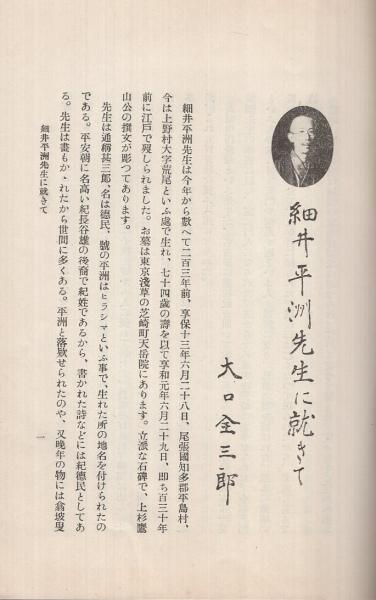 細井平洲先生に就きて
大口全三郎
細井平洲先生は今年から數へて二百三年前、享保十三年六月二十八日、尾張國知多郡平島村、
今は上野村大字荒尾といふ處で生れ、七十四歲の壽を以て享和元年六月二十九日、卽ち百三十年
前に江戶で歿しられました。お墓は東京淺草の芝崎町天岳院にあります。立派な石碑で、上杉鷹
山公の撰文が彫つてあります。
先生は通稱甚三郎、名は德民、號の平洲はヒラシマといふ事で、生れた所の地名を付けられたの
である。平安朝に名高い紀長谷雄の後裔で紀姓であるから、書かれた詩などには紀德民としてあ
る。先生は畫もかゝれたから世間に多くある。平洲と落欵せられたのや、又晚年の物には翕坡叟
細井平洲先生に就きて
一